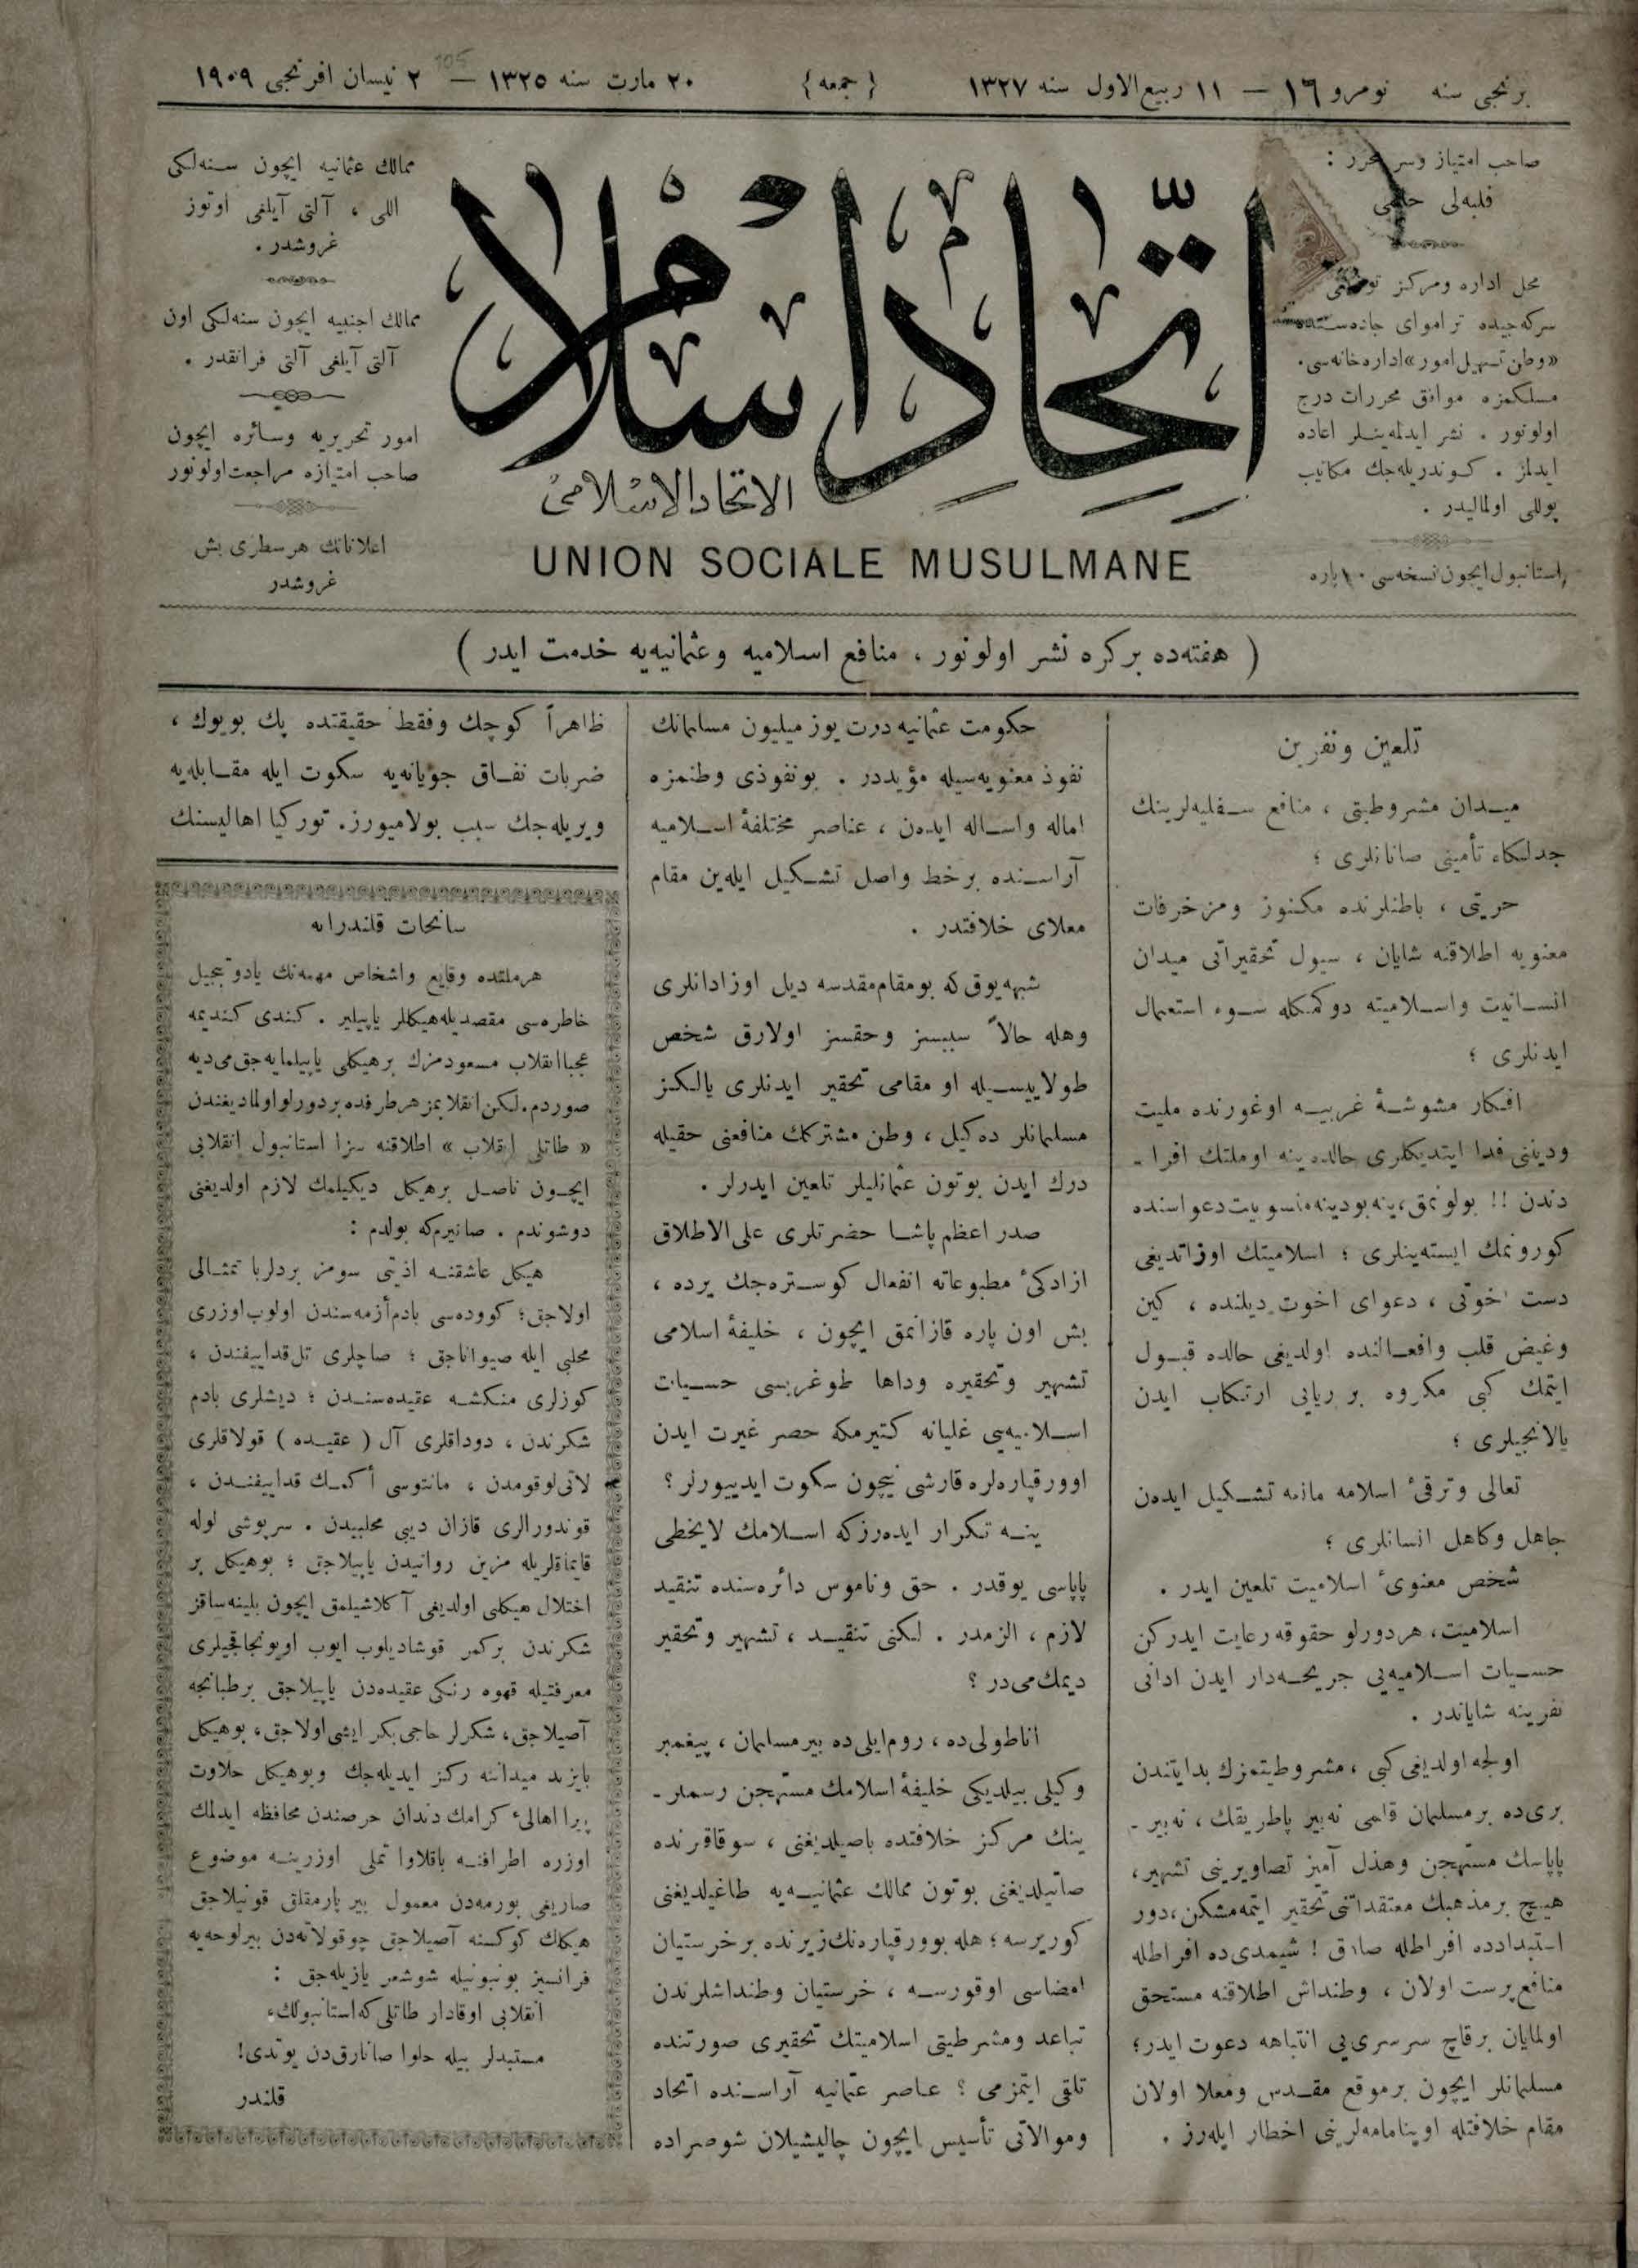 برنجى سنه نومرو ١٦ — ١١ ربيع‌الاول سنه ١٣٢٧ {جمعه} ٢٠ مارت سنه ١٣٢٥ — ٢ نيسان افرنجى ١٩٠٩
صاحب امتياز وسر محرر :
فلبه‌لى حلمى
محل اداره ومركز توزيعى
سركه‌جيده تراموای جاده‌سنده
«وطن تسهيل امور» اداره‌خانه‌سى.
مسلكمزه موافق محررات درج
اولونور . نشر ايدلمه‌ينلر اعاده
ايدلمز . كوندريله‌جك مكاتيب
پوللى اولماليدر .
استانبول ايچون نسخه‌سى ١٠ پاره
اتحاد اسلام
الاتحاد الاسلامى
UNION SOCIALE MUSULMANE
ممالك عثمانيه ايچون سنه‌لكى
اللى ، آلتى آيلغى اوتوز
غروشدر .
ممالك اجنبيه ايچون سنه‌لكى اون
آلتى آيلغى آلتى فرانقدر .
امور تحريريه وسائره ايچون
صاحب امتيازه مراجعت اولونور
اعلاناتك هر سطرى بش
غروشدر
( هفته‌ده بر كره نشر اولونور ، منافع اسلاميه وعثمانيه‌يه خدمت ايدر )
تلعين ونفرين
ميدان مشروطيتى ، منافع سفليه‌لرينك
جدلكاه تأمينى صانانلرى ؛
حريتى ، باطنلرنده مكنوز ومزخرفات
معنويه اطلاقنه شايان ، سيول تحقيراتى ميدان
انسانيت واسلاميته دوكمكله سوء استعمال
ايدنلرى ؛
افكار مشوشهٔ غربيه اوغورنده مليت
ودينى فدا ايتديكلرى حالده ينه او ملتك افرا -
دندن !! بولونمق، ينه بو دينه منسوبيت دعواسنده
كورونمك ايسته‌ينلرى ؛ اسلاميتك اوزاتديغى
دست اخوتى ، دعواى اخوت ديلنده ، كين
وغيض قلب وافعالنده اولديغى حالده قبول
ايتمك كبى مكروه بر ريايى ارتكاب ايدن
يالانجيلرى ؛
تعالى وترقىٔ اسلامه مانعه تشكيل ايدن
جاهل وكاهل انسانلرى ؛
شخص معنوىٔ اسلاميت تلعين ايدر .
اسلاميت، هر دورلو حقوقه رعايت ايدركن
حسيات اسلاميه‌يى جريحه‌دار ايدن ادانى
نفرينه شاياندر .
اولجه اولديغى كبى ، مشروطيتمزك بدايتندن
برى‌ده بر مسلمان قلمى نه بير پاطريقك ، نه بير -
پاپاسك مستهجن وهذل آميز تصاويرينى تشهير،
هيچ بر مذهبك معتقداتنى تحقير ايتمه‌مشكن، دور
استبدادده افراطله صادق ! شيمدى‌ده افراطله
منافع پرست اولان ، وطنداش اطلاقنه مستحق
اولمايان برقاچ سرسرى‌يى انتباهه دعوت ايدر؛
مسلمانلر ايچون بر موقع مقدس ومعلا اولان
مقام خلافتله اوينامامه‌لرينى اخطار ايله‌رز .
حكومت عثمانيه درت يوز ميليون مسلمانك
نفوذ معنويه‌سيله مؤيددر . بو نفوذى وطنمزه
اماله واساله ايدن ، عناصر مختلفهٔ اسلاميه
آراسنده بر خط واصل تشكيل ايله‌ين مقام
معلاى خلافتدر .
شبهه يوق كه بو مقام مقدسه ديل اوزادانلرى
وهله حالاً سببسز وحقسز اولارق شخص
طولاييسيله او مقامى تحقير ايدنلرى يالكز
مسلمانلر ده‌كيل ، وطن مشتركك منافعنى حقيله
درك ايدن بوتون عثمانليلر تلعين ايدرلر .
صدر اعظم پاشا حضرتلرى على الاطلاق
ازادكىٔ مطبوعاته انفعال كوستره‌جك يرده ،
بش اون پاره قازانمق ايچون ، خليفهٔ اسلامى
تشهير وتحقيره وداها طوغريسى حسيات
اسلاميه‌يى غليانه كتيرمكه حصر غيرت ايدن
اوورقپاره‌لره قارشى نيچون سكوت ايدييورلر ؟
ينه تكرار ايده‌رز كه اسلامك لايخطى
پاپاسى يوقدر . حق وناموس دائره‌سنده تنقيد
لازم ، الزمدر . لكن تنقيد ، تشهير وتحقير
ديمك مى‌در ؟
اناطولى‌ده ، روم‌ايلى‌ده بير مسلمان ، پيغمبر
وكيلى بيلديكى خليفهٔ اسلامك مستهجن رسملر -
ينك مركز خلافتده باصيلديغنى ، سوقاقلرنده
صاتيلديغنى بوتون ممالك عثمانيه‌يه طاغيلديغنى
كوريرسه ؛ هله بوورقپاره‌نك زيرنده بر خرستيان
امضاسى اوقورسه ، خرستيان وطنداشلرندن
تباعد ومشرطيتى اسلاميتك تحقيرى صورتنده
تلقى ايتمزمى ؟ عناصر عثمانيه آراسنده اتحاد
وموالاتى تأسيس ايچون چاليشيلان شو صراده
ظاهراً كوچك وفقط حقيقتده پك بويوك ،
ضربات نفاق جويانه‌يه سكوت ايله مقابله‌يه
ويريله‌جك سبب بولاميورز. توركيا اهاليسنك
سانحات قلندرانه
هر ملتده وقايع واشخاص مهمه‌نك ياد وتبجيل
خاطره‌سى مقصديله هيكللر ياپيلير . كندى كنديمه
عجبا انقلاب مسعودمزك بر هيكلى ياپيلمايه‌جق مى‌ديه
صوردم. لكن انقلابمز هر طرفده بر دورلو اولماديغندن
« طاتلى انقلاب » اطلاقنه سزا استانبول انقلابى
ايچون ناصل بر هيكل ديكيلمك لازم اولديغنى
دوشوندم . صانيرم كه بولدم :
هيكل عاشقنه اذيتى سومز بر دلربا تمثالى
اولاجق؛ كووده‌سى بادم ازمه‌سندن اولوب اوزرى
محلبى ايله صيواناجق ؛ صاچلرى تل قداييفندن ،
كوزلرى منكشه عقيده‌سندن ؛ ديشلرى بادم
شكرندن ، دوداقلرى آل ( عقيده ) قولاقلرى
لاتى لوقومدن ، مانتوسى أكمك قداييفندن ،
قوندورالرى قازان ديبى محلبيدن . سرپوشى لوله
قايماقلريله مزين روانيدن ياپيلاجق ؛ بو هيكل بر
اختلال هيكلى اولديغى آكلاشيلمق ايچون بلينه ساقز
شكرندن بر كمر قوشاديلوب ايوب اويونجاقجيلرى
معرفتيله قهوه رنكى عقيده‌دن ياپيلاجق بر طبانجه
آصيلاجق، شكرلر حاجى بكر ايشى اولاجق، بو هيكل
بايزيد ميداننه ركز ايديله‌جك وبو هيكل حلاوت
پيرا اهالىٔ كرامك دندان حرصندن محافظه ايدلمك
اوزره اطرافنه باقلاوا تملى اوزرينه موضوع
صاريغى بورمه‌دن معمول بير پارمقلق قونيلاجق
هيكلك كوكسنه آصيلاجق چوقولاته‌دن بير لوحه‌يه
فرانسز بونبونيله شو شعر يازيله‌جق :
انقلابى اوقادار طاتلى كه استانبولك،
مستبدلر بيله حلوا صانارق‌دن يوتدى!
قلندر